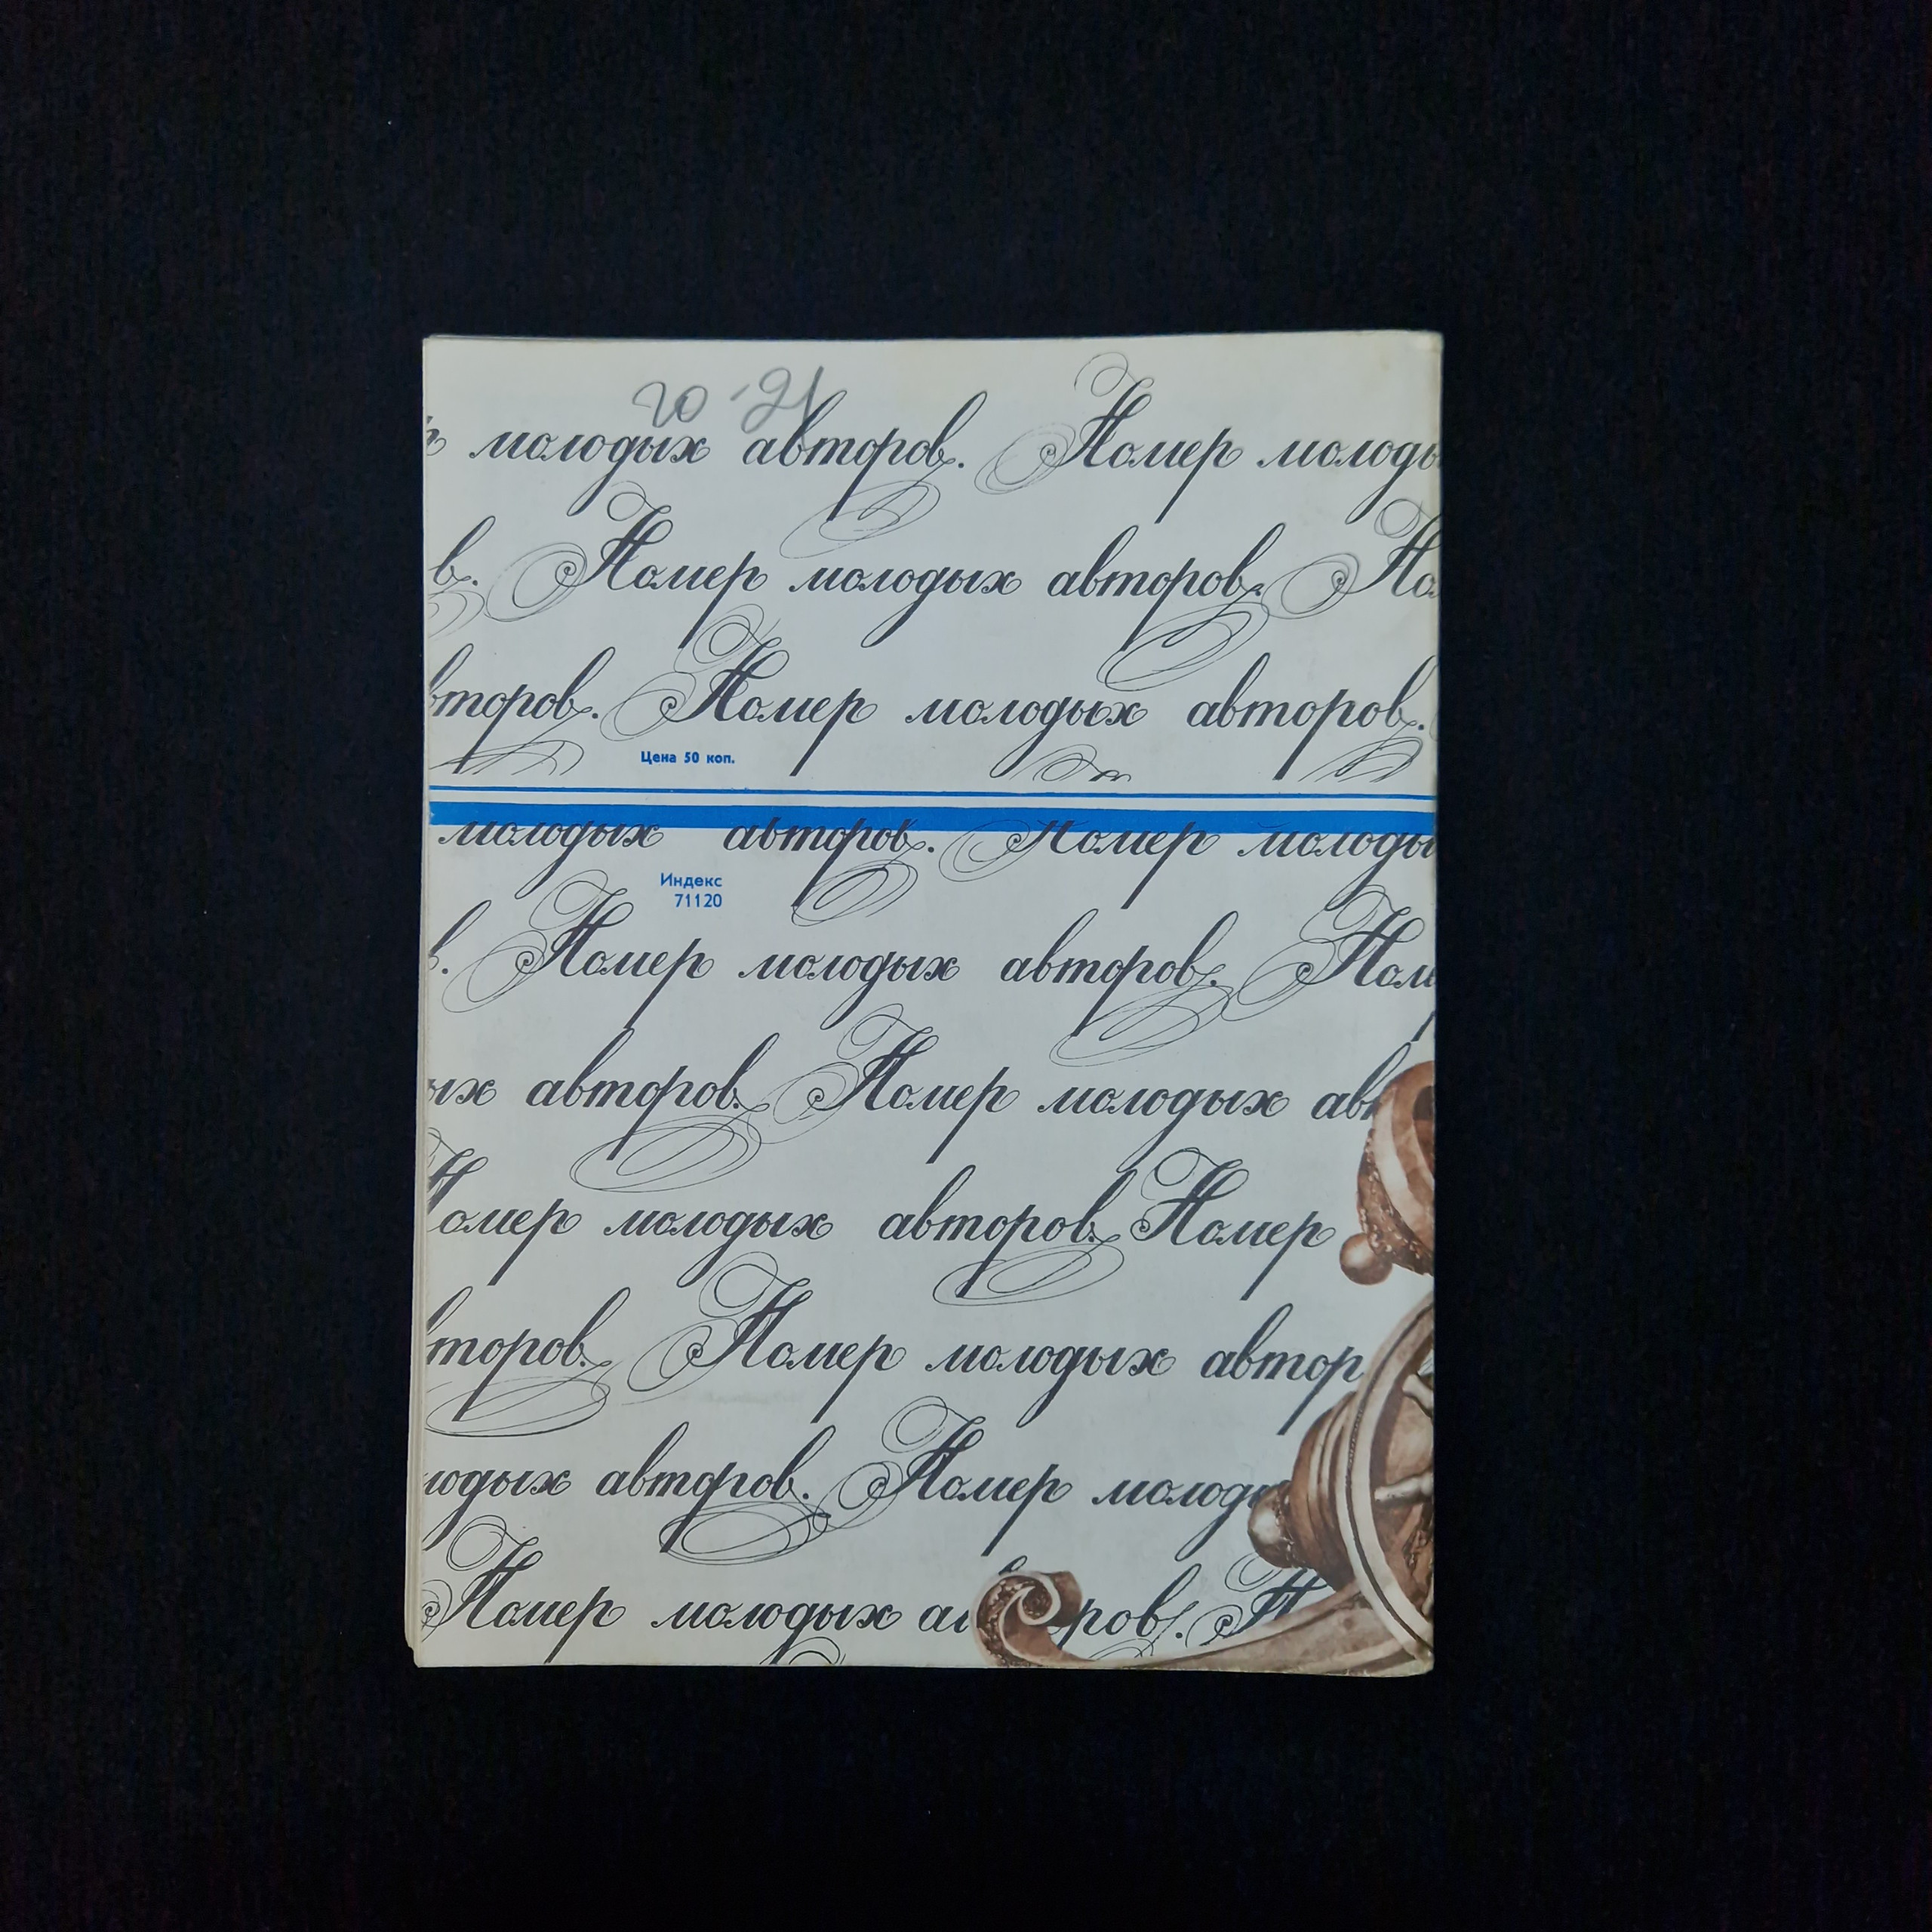 20-21
молодых авторов. Номер молоды
в. Номер молодых авторов. Но
второв. Номер молодых авторов.
Цена 50 коп.
молодых авторов. Номер молоды
Индекс
71120
в. Номер молодых авторов. Ном
ых авторов. Номер молодых авт
Номер молодых авторов. Номер
второв. Номер молодых автор
лодых авторов. Номер молоды
Номер молодых ав ров. Н